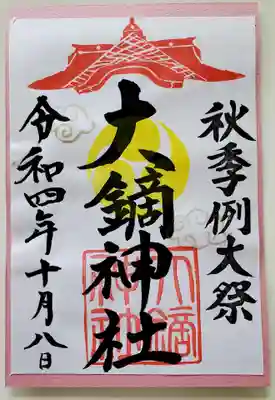 秋季例大祭
大鏑神社
令和四年十月八日
大鏑神社